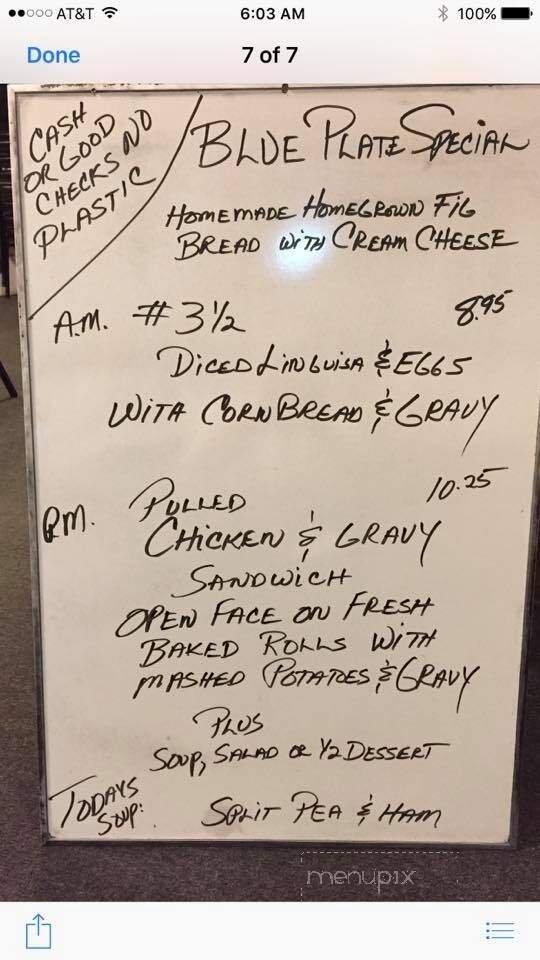 AT&T
6:03 AM
100%
Done
7 of 7
CASH
OR GOOD
CHECKS NO
PLASTIC
BLUE PLATE SPECIAL
HOMEMADE HOMEGROWN FIG
BREAD WITH CREAM CHEESE
A.M. #3 1/2 8.95
DICED LINGUISA & EGGS
WITH CORN BREAD & GRAVY
P.M. PULLED 10.25
CHICKEN & GRAVY
SANDWICH
OPEN FACE ON FRESH
BAKED ROLLS WITH
MASHED POTATOES & GRAVY
PLUS
SOUP, SALAD OR 1/2 DESSERT
TODAYS
SOUP: SPLIT PEA & HAM
menupix